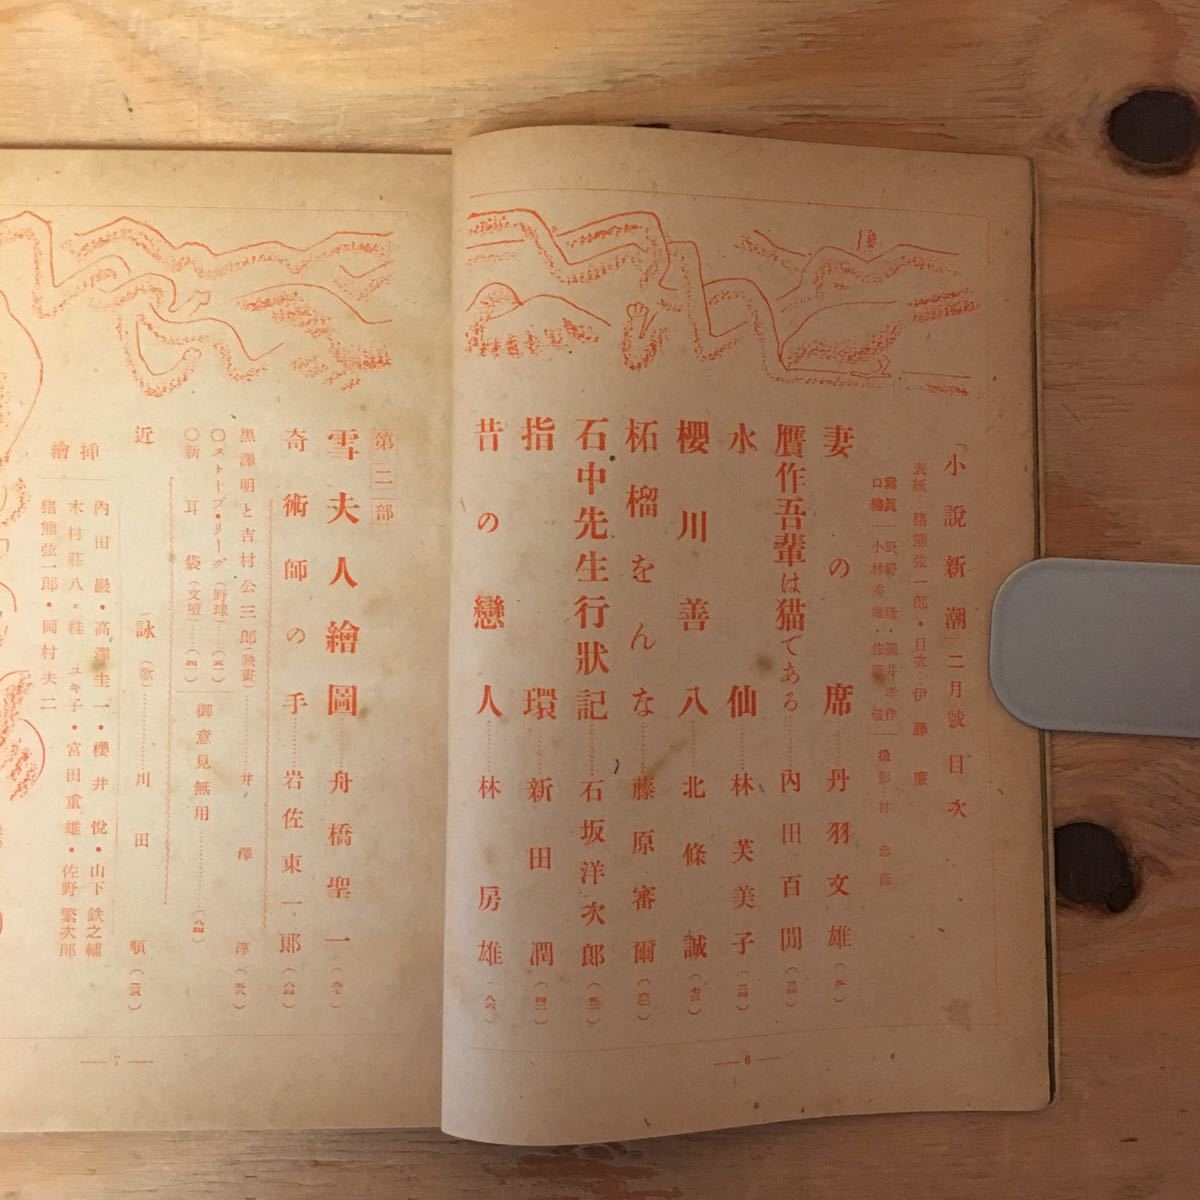 「小說新潮」二月號目次
表紙…猪熊弦一郎・目次…伊藤廉
妻の席……丹羽文雄
贋作吾輩は猫である……內田百閒
水仙……林芙美子
櫻川善八……北條誠
柘榴をんな……藤原審爾
石中先生行狀記……石坂洋次郎
指環……新田潤
昔の戀人……林房雄
— 6 —
第二部
雪夫人繪圖……舟橋聖一
奇術師の手……岩佐東一郎
黑澤明と吉村公三郎(映畫)……井澤淳
〇ストーブ・リーグ(野球)
〇新耳袋(文壇)
御意見無用
近詠(歌)……川田順
挿繪
內田巖・高澤圭一・櫻井悅・山下鉄之輔
木村莊八・桂ユキ子・宮田重雄・佐野繁次郎
猪熊弦一郎・岡村夫二
— 7 —